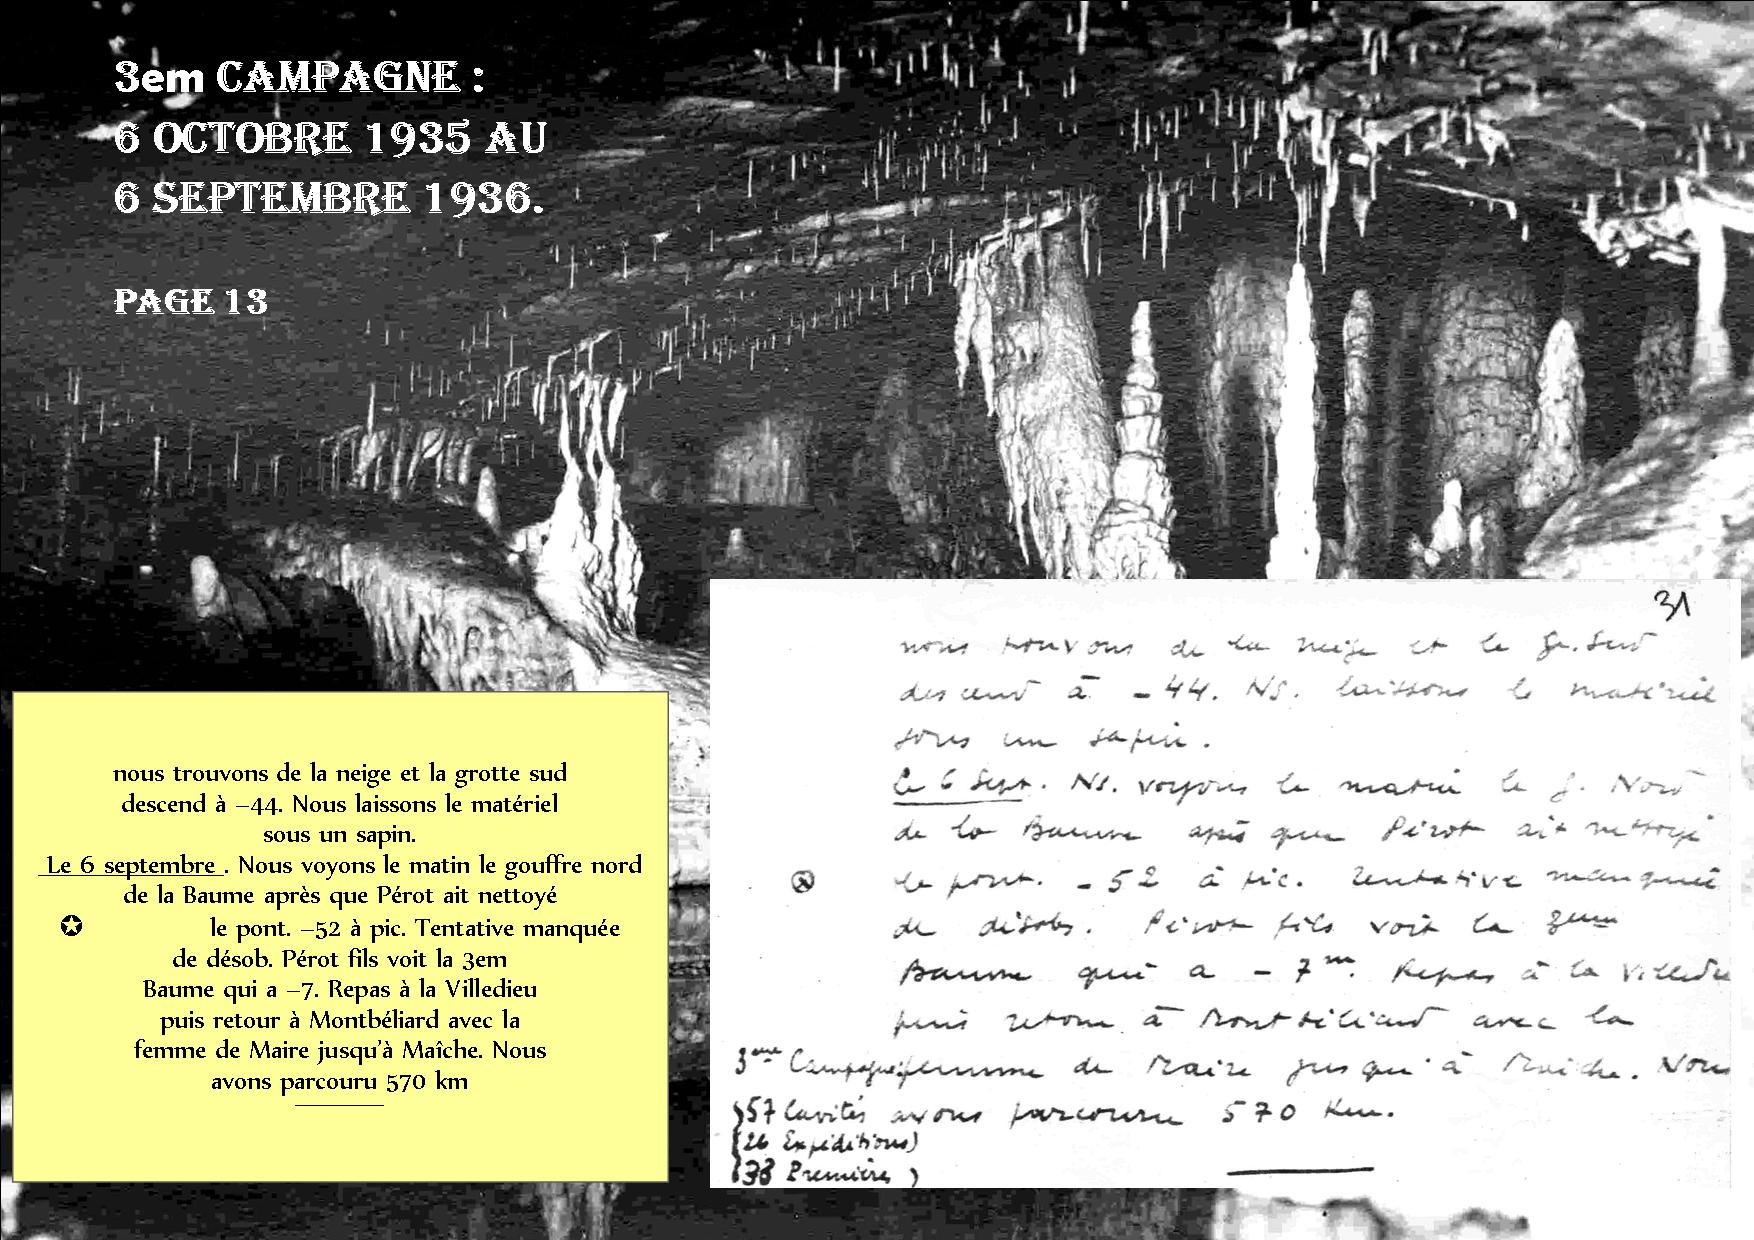 3em CAMPAGNE :
6 OCTOBRE 1935 AU
6 SEPTEMBRE 1936.
PAGE 13
nous trouvons de la neige et la grotte sud
descend à –44. Nous laissons le matériel
sous un sapin.
Le 6 septembre . Nous voyons le matin le gouffre nord
de la Baume après que Pérot ait nettoyé
✪ le pont. –52 à pic. Tentative manquée
de désob. Pérot fils voit la 3em
Baume qui a –7. Repas à la Villedieu
puis retour à Montbéliard avec la
femme de Maire jusqu’à Maîche. Nous
avons parcouru 570 km
31
nous trouvons de la neige et le g. sud
descend à - 44. Ns. laissons le matériel
sous un sapin.
Le 6 Sept. Ns. voyons le matin le g. Nord
de la Baume après que Pérot ait nettoyé
le pont. - 52 à pic. Tentative manquée
de désob. Pérot fils voit la 3eme
Baume qui a - 7m. Repas à la Villedieu
puis retour à Montbéliard avec la
3eme Campagne femme de Maire jusqu'à Maiche. Nous
57 Cavités avons parcouru 570 Km.
(26 Expéditions)
(38 Première)